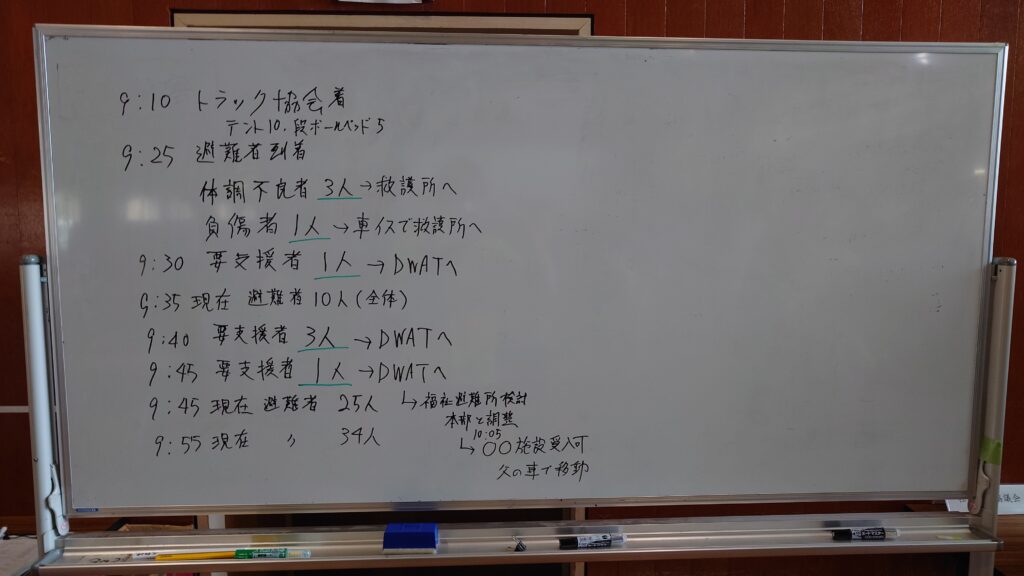 9:10 トラック協会着
テント10.段ボールベッド5
9:25 避難者到着
体調不良者 3人→救護所へ
負傷者 1人→車イスで救護所へ
9:30 要支援者 1人→DWATへ
9:35現在 避難者10人(全体)
9:40 要支援者 3人→DWATへ
9:45 要支援者 1人→DWATへ
9:45 現在 避難者 25人 ↳福祉避難所検討
本部と調整
10:05
9:55 現在 〃 34人 ↳〇〇施設受入可
父の車で移動
議会